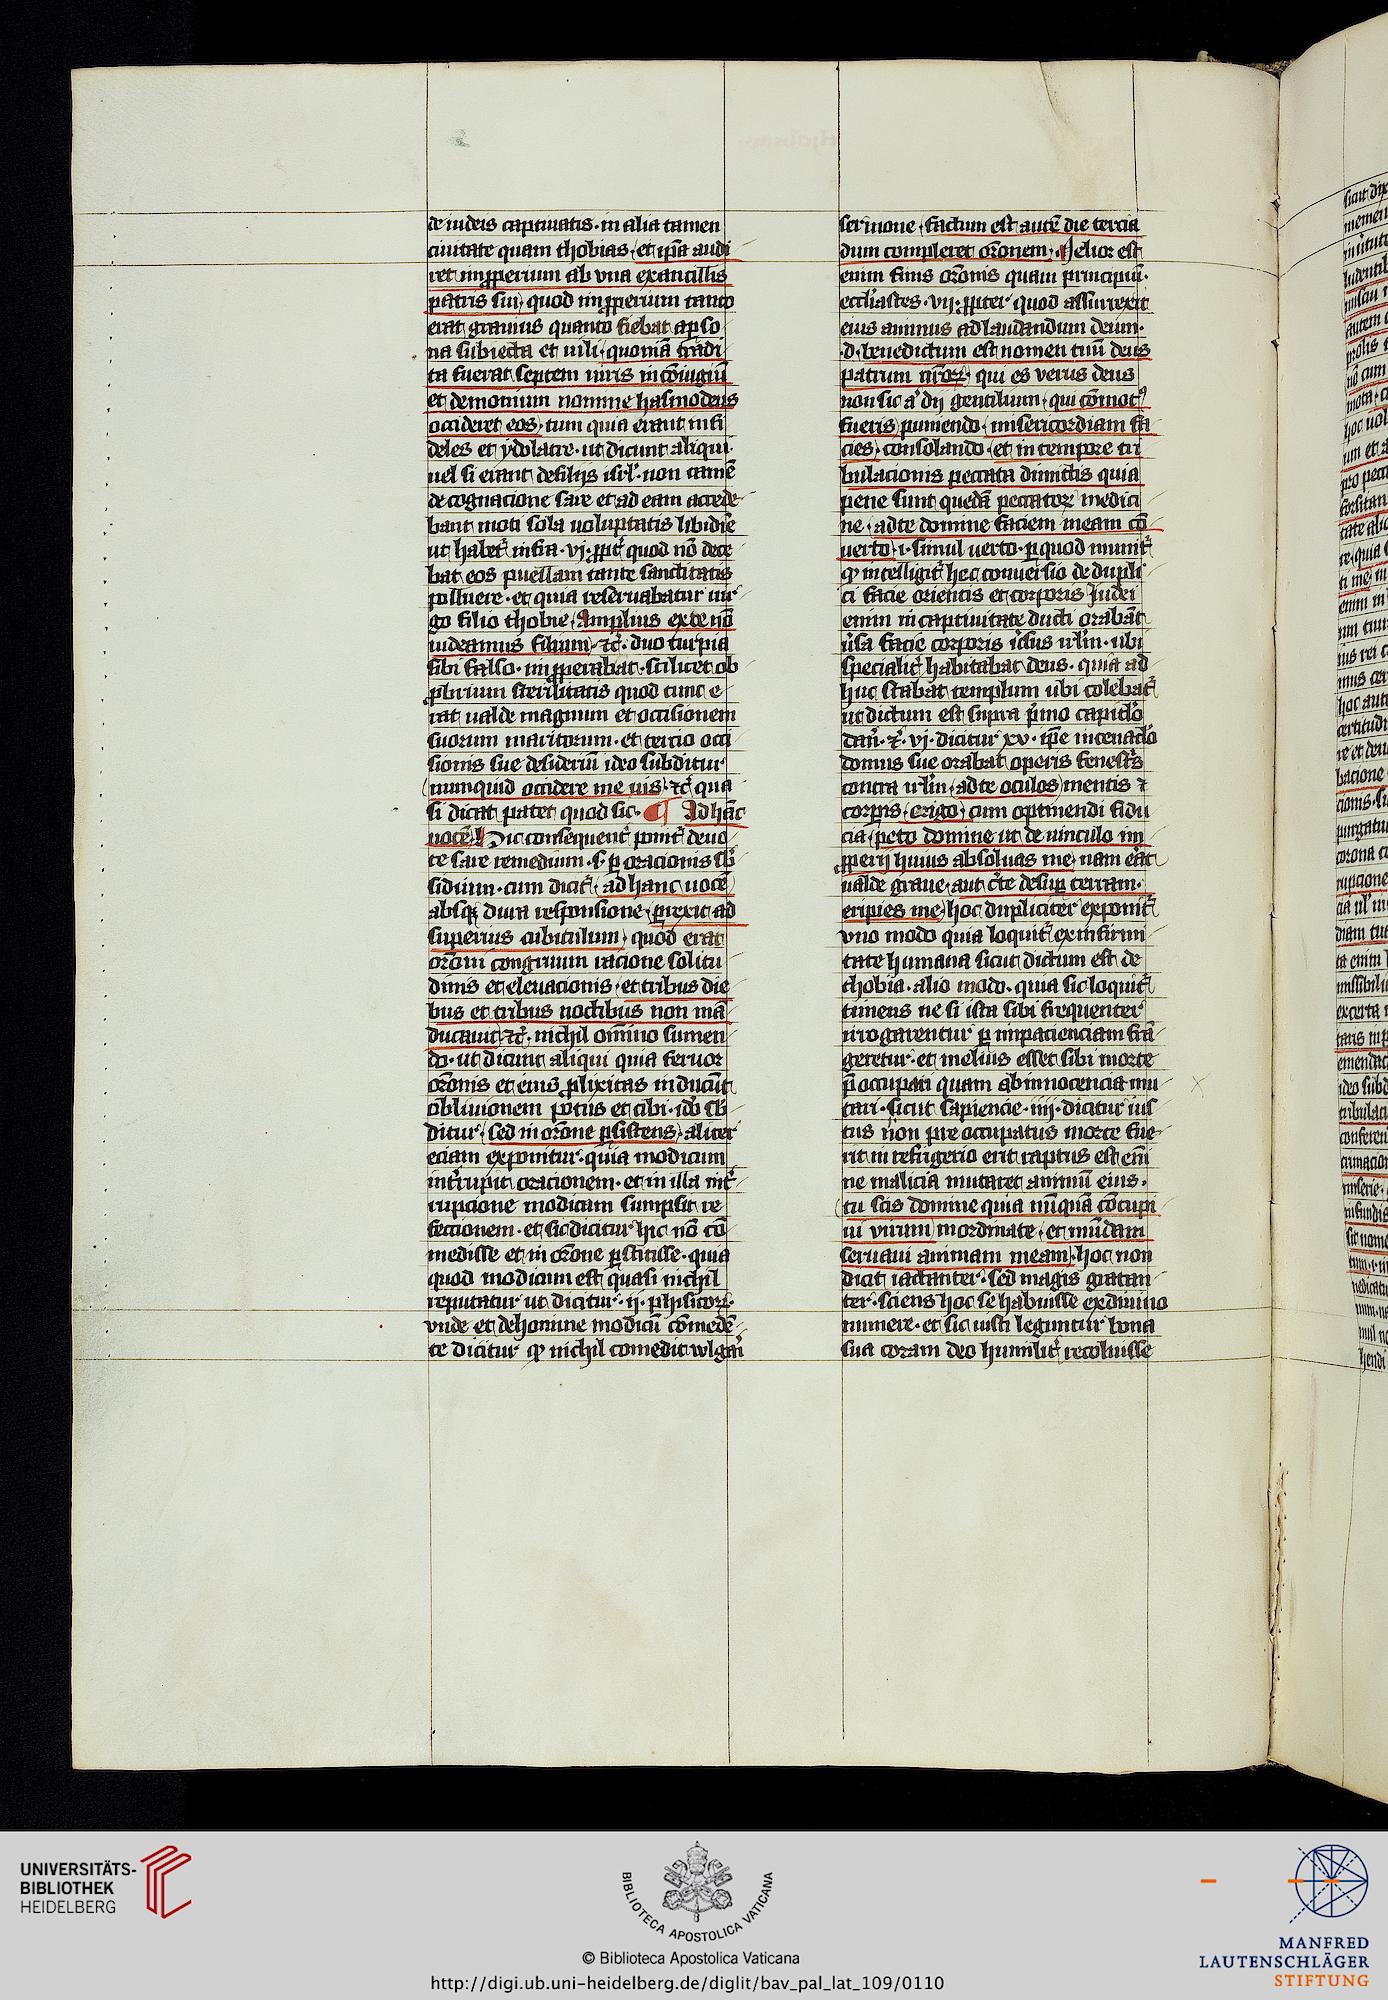 de iudeis captiuatis · in alia tamen
ciuitate quam thobias · et ip̄a audi
ret imꝓperium ab vna ex ancillis
patris sui · quod imꝓperium tanto
erat grauius quanto fiebat a ꝑso
na subiecta et uili · quoniā tradi
ta fuerat septem uiris in ↄ̄iugiū
et demonium nomine hasmodeus
occideret eos · tum quia erant infi
deles et ydolatre · ut dicunt aliqui ·
uel si erant de filijs isrl̄ · non tamē
de cognacione sare et ad eam accede
bant moti sola uoluptatis libidīe
ut habet᷑ infra · vj · ꝓpt᷑ quod nō dece
bat eos puellam tante sanctitatis
polluere · et quia reseruabatur uir
go filio thobie · Amplius ex te nō
uideamus filium · ⁊c̄ · duo turpia
sibi falso · imꝓperabat · scilicet ob
ꝓbrium sterilitatis quod tunc e
rat ualde magnum et occisionem
suorum maritorum · et tercio occi
sionis sue desideriū ideo subditur
numquid occidere me uis · ⁊c̄ qua
si dicat patet quod sic · ¶ Ad hāc
uocē · Hic consequent᷑ ponit᷑ deuo
te sare remedium · s · ꝑ oracionis sb̄
sidium · cum dicit᷑ · ad hanc uocē
absqꝫ dura responsione · ꝑrexit ad
superius cubiculum · quod erat
orōni congruum racione solitu
dinis et eleuacionis · et tribus die
bus et tribus noctibus non mā
ducauit · ⁊c̄ · nichil om̄ino sumen
do · ut dicunt aliqui quia feruor
orōnis et eius ꝓlixitas inducūt
obliuionem potus et cibi · id̄o sb̄
ditur · sed in orōne ꝑsistens · aliter
eciam exponitur · quia modicum
int᷑rupit oracionem · et in illa int᷑
rupcione modicam sumpsit re
fectionem · et sic dicitur hic nō cō
medisse et in orōne ꝑstitisse · quia
quod modicum est quasi nichil
reputatur ut dicitur · ij · phisicoꝝ ·
vnde et de homine modicū comedē
te dicitur ꝙ nichil comedit wlgari
sermone · factum est autē die tercia
dum compleret orōnem · Melior est
enim finis orōnis quam principiū ·
eccl̄iastes · vij · ꝓpter quod assurrexit
eius animus ad laudandum deum ·
· d · benedictum est nomen tuū deus
patrum nr̄oꝝ · qui es verus deus
non sic a᷑ dij gentilium · qui cōmotꝰ
fueris puniendo · misericordiam fa
cies · consolando · et in tempore tri
bulacionis peccata dimittis quia
pene sunt quedā peccatoꝝ medici
ne · ad te domine faciem meam cō
uerto · i · simul uerto · ꝑ quod
ꝙ intelligit᷑ hec conuersio de dupli
ci facie orientis et corporis Iudei
enim in captiuitate ducti orabāt
u᷑sa facie corporis u᷑sus ir᷑lm · ubi
specialit᷑ habitabat deus · quia ad
huc stabat templum ubi colebat᷑
ut dictum est supra p᷑mo capitl̄o
dan̄ · ⁊ · vj · dicitur xv · ip̄e in cenacl̄o
domus sue orabat operis fenest᷑s
contra ir᷑lm · ad te oculos mentis ⁊
corꝑis · erigo · cum optinendi fidu
cia · peto domine ut de uinculo im
ꝓperij huius absoluas me · nam er̄at
ualde graue · aut c̄te desuꝑ terram ·
eripies me · hoc dupliciter exponit᷑
vno modo quia loquit᷑ ex infirmi
tate humana sicut dictum est de
thobia · alio modo · quia sic loquit᷑
timens ne si ista sibi frequenter
irrogarentur ꝑ impacienciam frā
geretur · et melius esset sibi morte
p̄occupari quam ab innocencia mu
tari · sicut sapiencie · iiij · dicitur ius
tus non pre occupatus morte fue
rit in refrigerio erit raptus est eni᷑
ne malicia mutaret animū eius ·
tu scis domine quia nūquā cōcupi
ui virum inordinate · et mūdam
seruaui animam meam · hoc non
dicit iactanter · sed magis gratan
ter · sciens hoc se habuisse ex diuino
munere · et sic iusti leguntur bona
sua coram deo humilit᷑ recoluisse
UNIVERSITÄTS-
BIBLIOTHEK
HEIDELBERG
BIBLIOTECA APOSTOLICA VATICANA
© Biblioteca Apostolica Vaticana
http://digi.ub.uni-heidelberg.de/diglit/bav_pal_lat_109/0110
MANFRED
LAUTENSCHLÄGER
STIFTUNG